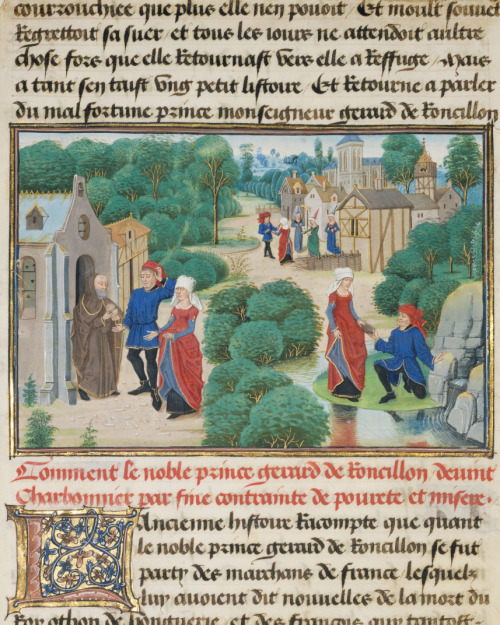 courrouchiee que plus elle nen pouoit Et moult souuet
Regrettoit sa suer et tous les iours ne attendoit aultre
chose fors que elle Retournast vers elle a Reffuge Mais
a tant sen taist vng petit listoire Et Retourne a parler
du mal fortune prince monseigneur gerard de Roncillon
Comment le noble prince gerard de Roncillon deuint
Charbonnier par fine contrainte de pourete et misere
Lancienne histoire Racompte que quant
le noble prince gerard de Roncillon se fut
party des marchans de france lesquelz
luy auoient dit nouuelles de la mort du
Roy othon de honguerie et des francois qui tantost